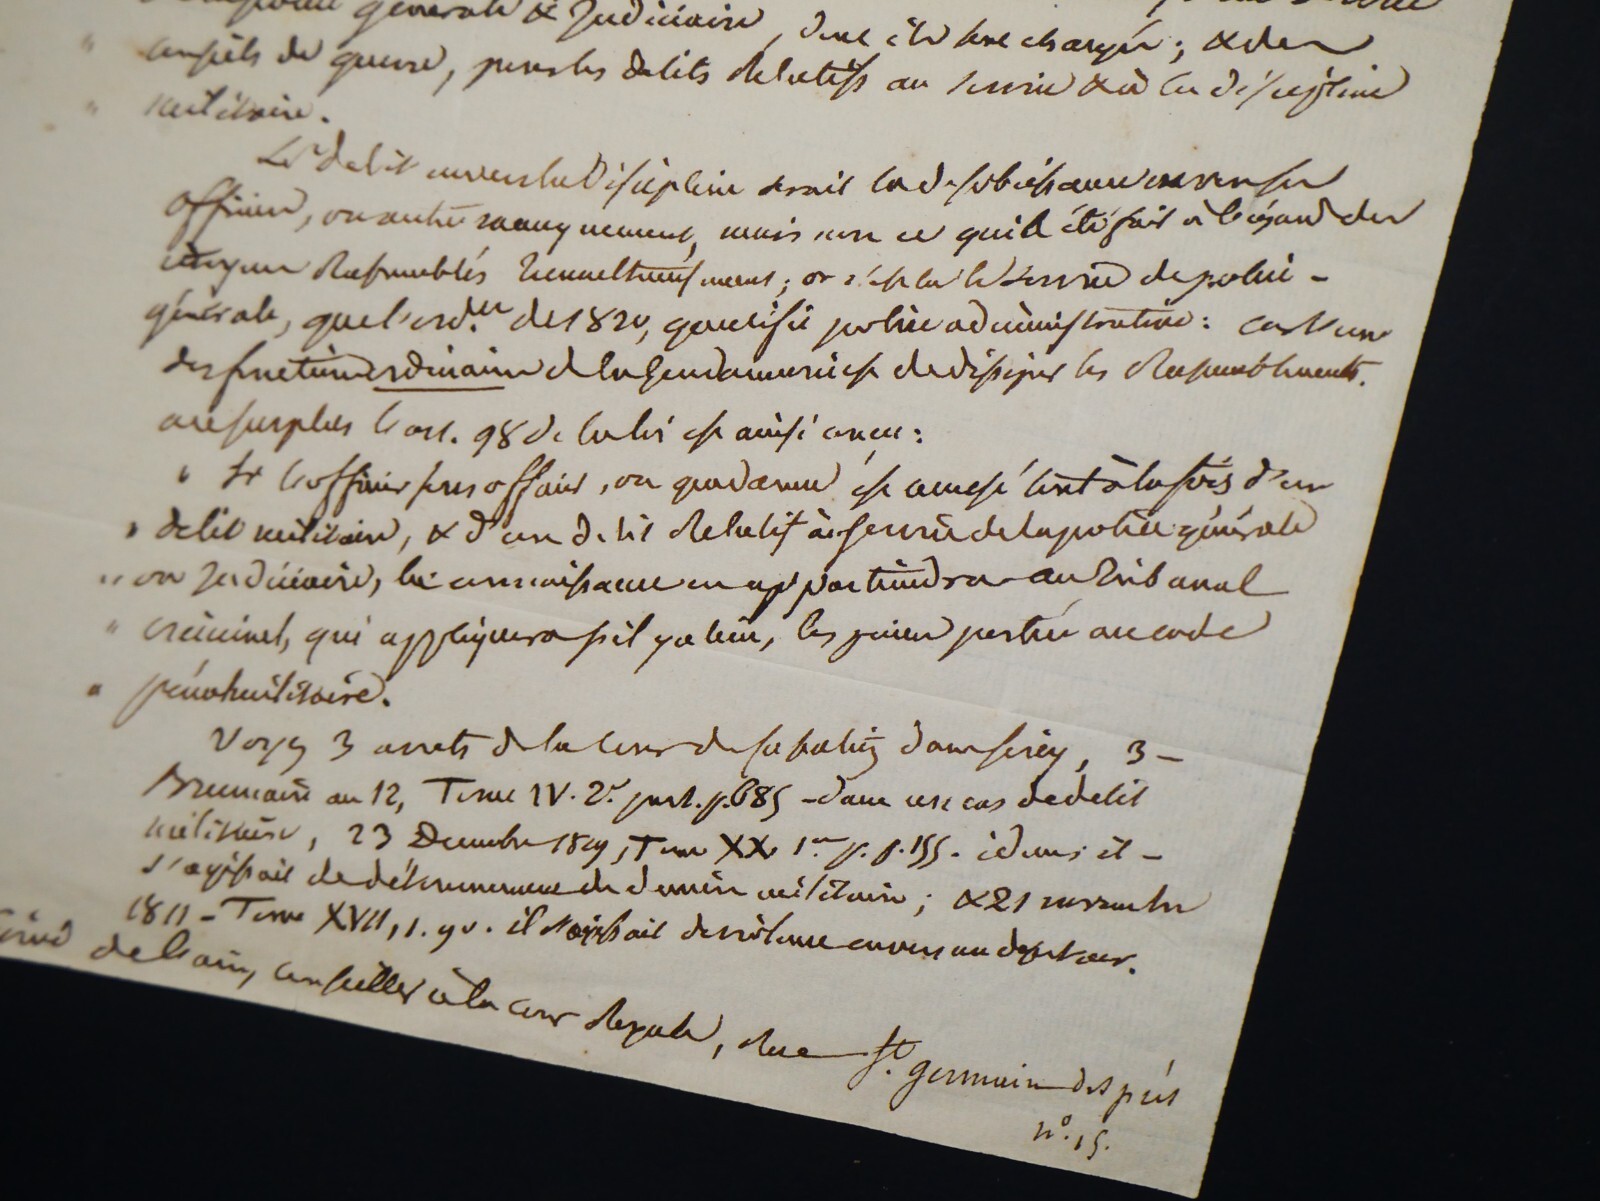 générale & judiciaire, dont ils sont chargés; & des
" conseils de guerre, pour les délits relatifs au service & à la discipline
" militaire.
Le délit envers la discipline serait la désobéissance envers son
officier, ou autre manquement, mais non ce qui a été fait à l'égard des
citoyens rassemblés tumultueusement; or c'est là le service de police
générale, que l'ord.ce de 1820, qualifie police administrative: car l'une
des fonctions ordinaires de la gendarmerie est de dissiper les rassemblements.
au surplus l'art. 98 de la loi est ainsi conçu:
" Si l'officier, sous officier, ou gendarme est accusé tout à la fois d'un
" délit militaire, & d'un délit relatif au service de la police générale
" ou judiciaire, la connaissance en appartiendra au tribunal
" criminel, qui appliquera s'il y a lieu, les peines portées au code
" pénal militaire.
Voyez 3 arrets de la Cour de cassation dans Sirey, 3
Brumaire an 12, Tome IV. 2e part. p. 685 - dans un cas de délit
militaire, 23 Decembre 1819, Tome XX 1re p. p. 155. : il
s'agissait de détournement de deniers militaires; & 21 novembre
1811 - Tome XVII, 1. 90. il s'agissait de violence envers un déserteur.
de l'ain, conseiller à la cour Royale, rue St. germain des prés
n°. 15.